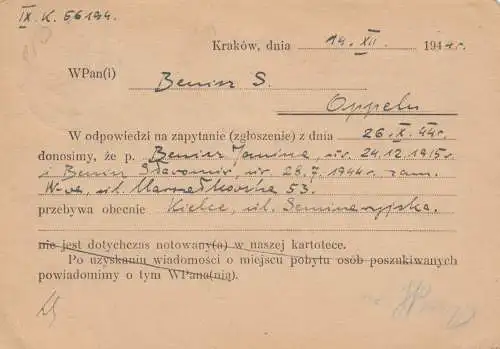 IX. K. 56194.
Kraków, dnia 14. XII. 1944 r.
WPan(i) Benisz S.
Oppeln
W odpowiedzi na zapytanie (zgłoszenie) z dnia 26. X. 44r.
donosimy, że p. Benisz Janina, ur. 24.12.1915r.
i Benisz Sławomir, ur. 28.7.1944r. zam.
W-wa, ul. Marszałkowska 53.
przebywa obecnie Kielce, ul. Seminaryjska.
nie jest dotychczas notowany(a) w naszej kartotece.
Po uzyskaniu wiadomości o miejscu pobytu osób poszukiwanych
powiadomimy o tym WPana(nią).